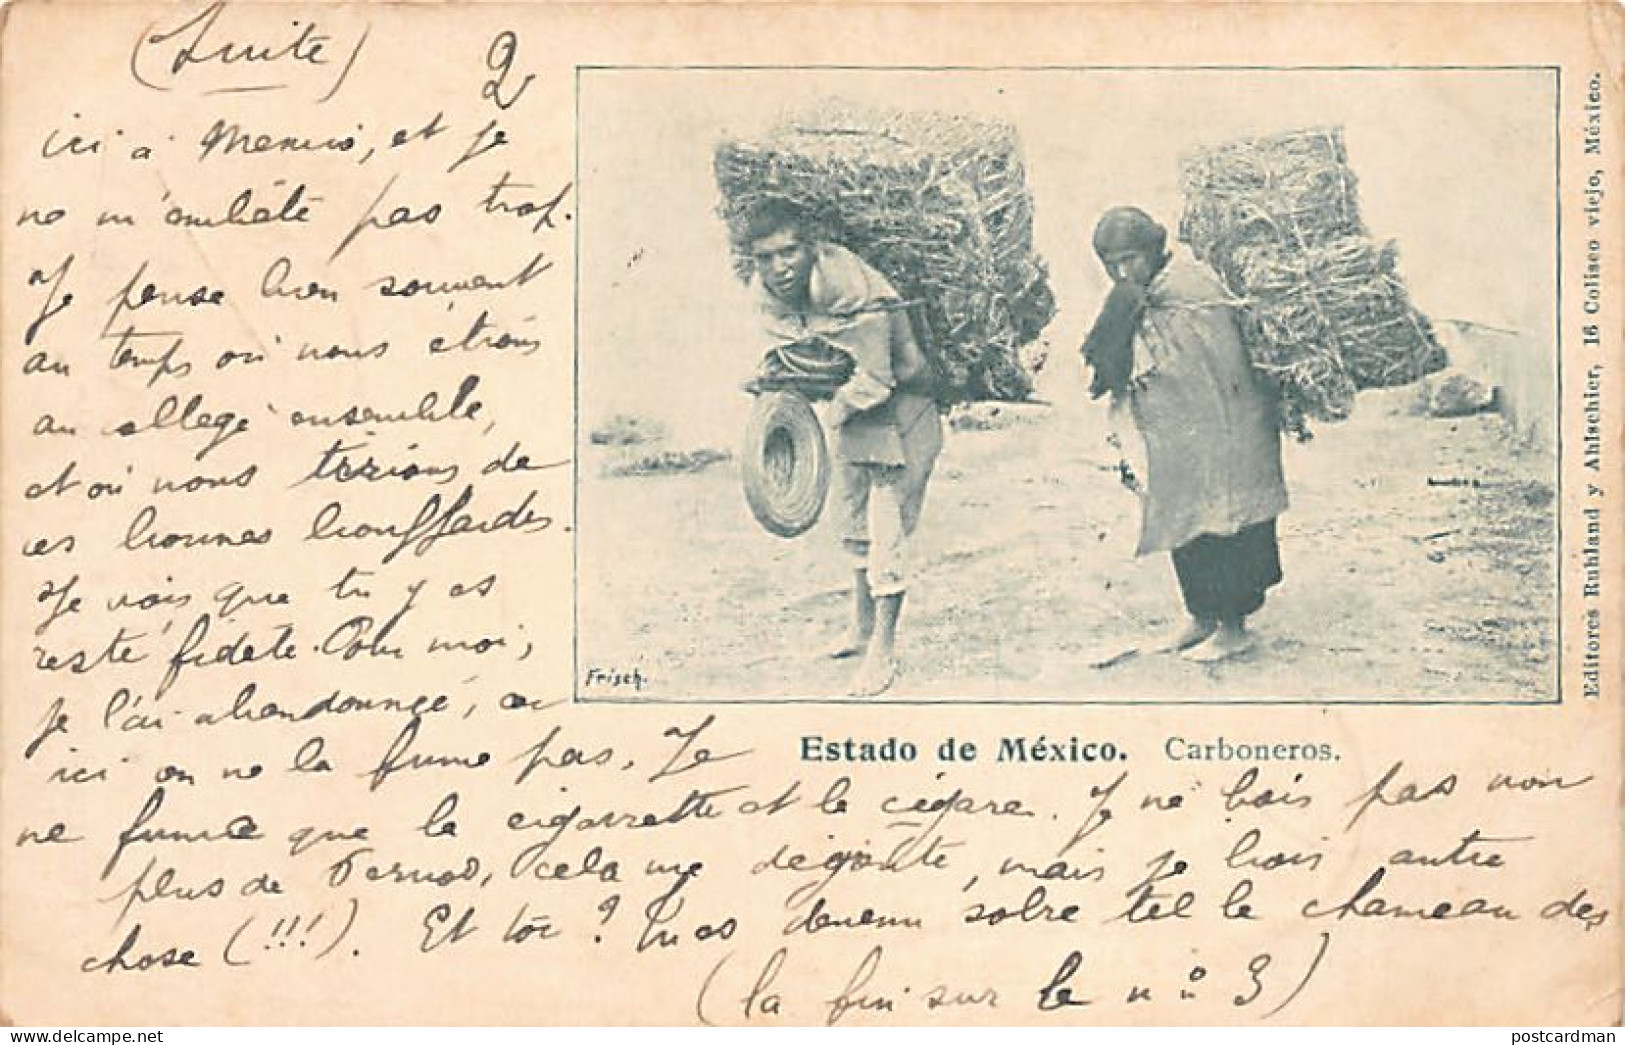 (Suite)
2
ici à Mexico, et je
ne m'embête pas trop.
Je pense bien souvent
au temps où nous étions
au collège ensemble,
et où nous tirions de
ces bonnes bouffardes.
Je vois que tu y es
resté fidèle. Pour moi,
je l'ai abandonnée, car
ici on ne la fume pas. Je
ne fume que la cigarette et le cigare. Je ne bois pas non
plus de Pernod, cela me dégoûte, mais je bois autre
chose (!!!). Et toi ? Tu es devenu sobre tel le chameau des
(la fin sur le n° 3)
Frisch.
Estado de México. Carboneros.
Editores Ruhland y Ahlschier, 16 Coliseo viejo, México.
postcardman